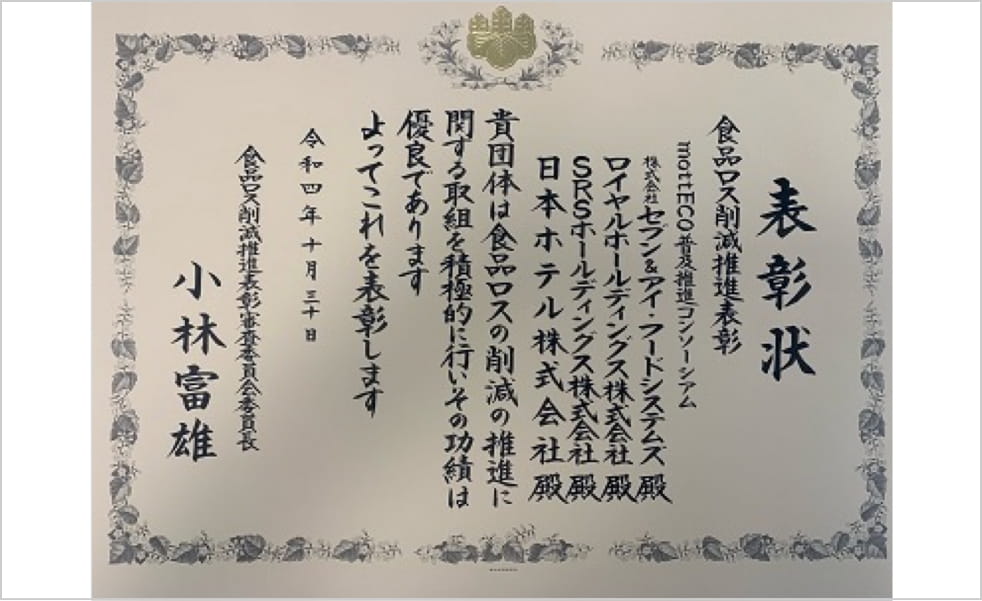 表彰状
食品ロス削減推進表彰
mottECO普及推進コンソーシアム
株式会社セブン&アイ・フードシステムズ殿
ロイヤルホールディングス株式会社殿
SRSホールディングス株式会社殿
日本ホテル株式会社殿
貴団体は食品ロスの削減の推進に
関する取組を積極的に行いその功績は
優良であります
よってこれを表彰します
令和四年十月三十日
食品ロス削減推進表彰審査委員会委員長
小林富雄